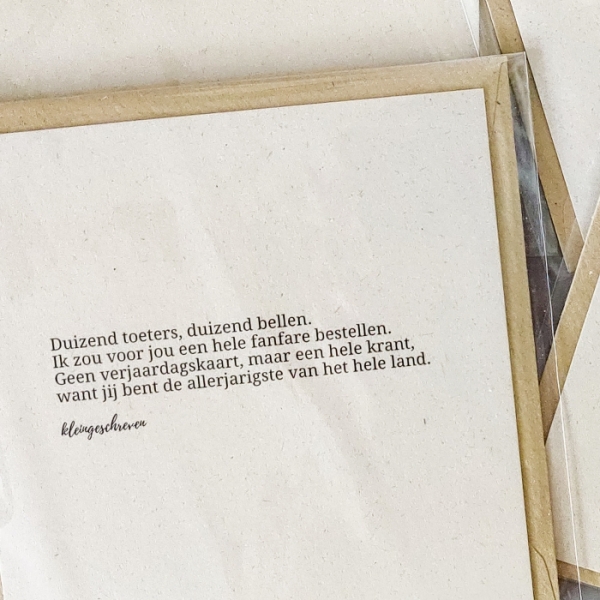 Duizend toeters, duizend bellen.
Ik zou voor jou een hele fanfare bestellen.
Geen verjaardagskaart, maar een hele krant,
want jij bent de allerjarigste van het hele land.
kleingeschreven